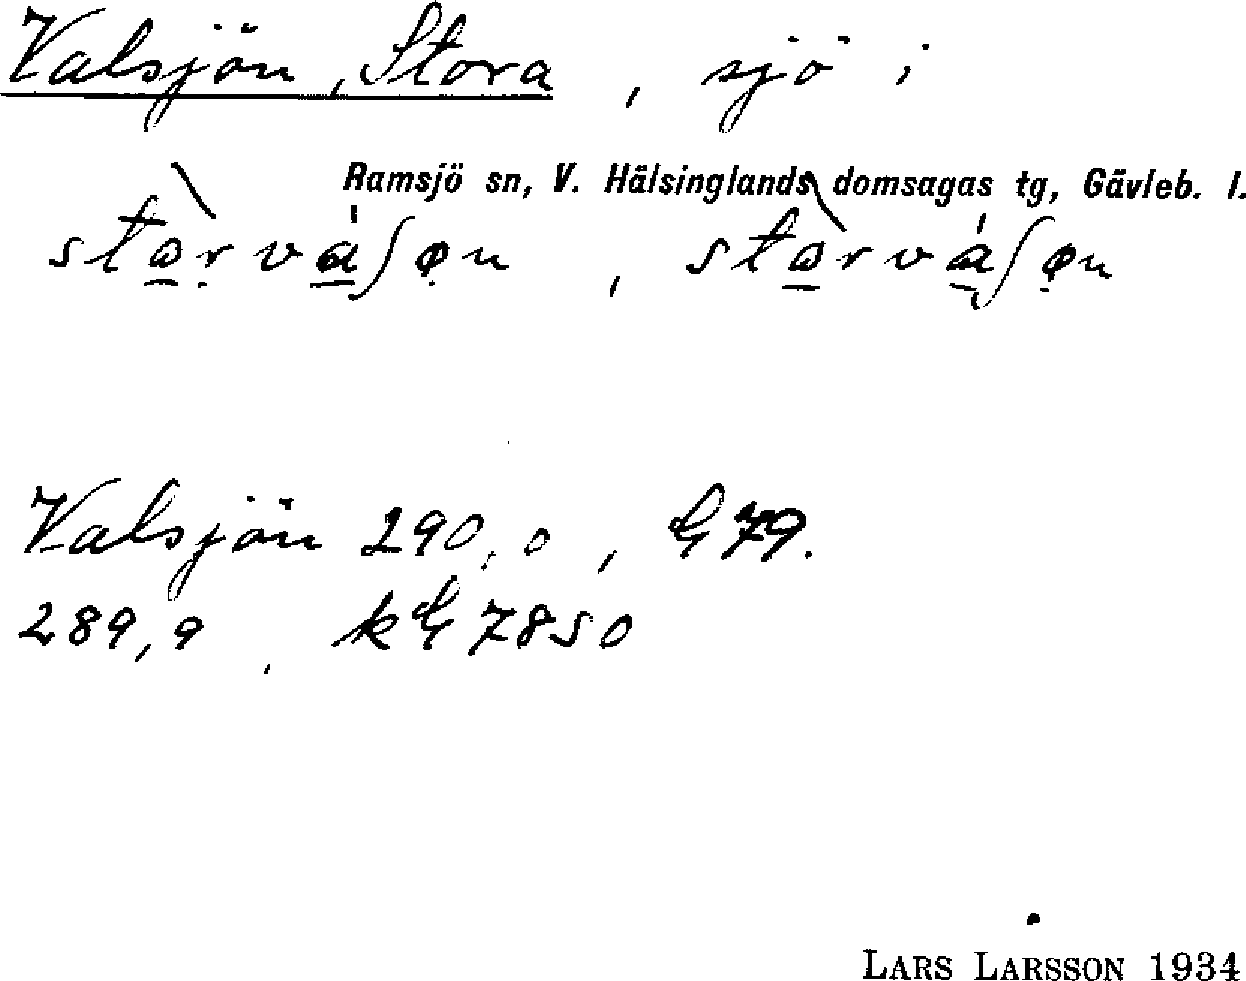 Valsjön, Stora, sjö i
Ramsjö sn, V. Hälsinglands domsagas tg, Gävleb. l.
Valsjön 290,0, G 79.
289,9, kG 7850
LARS LARSSON 1934